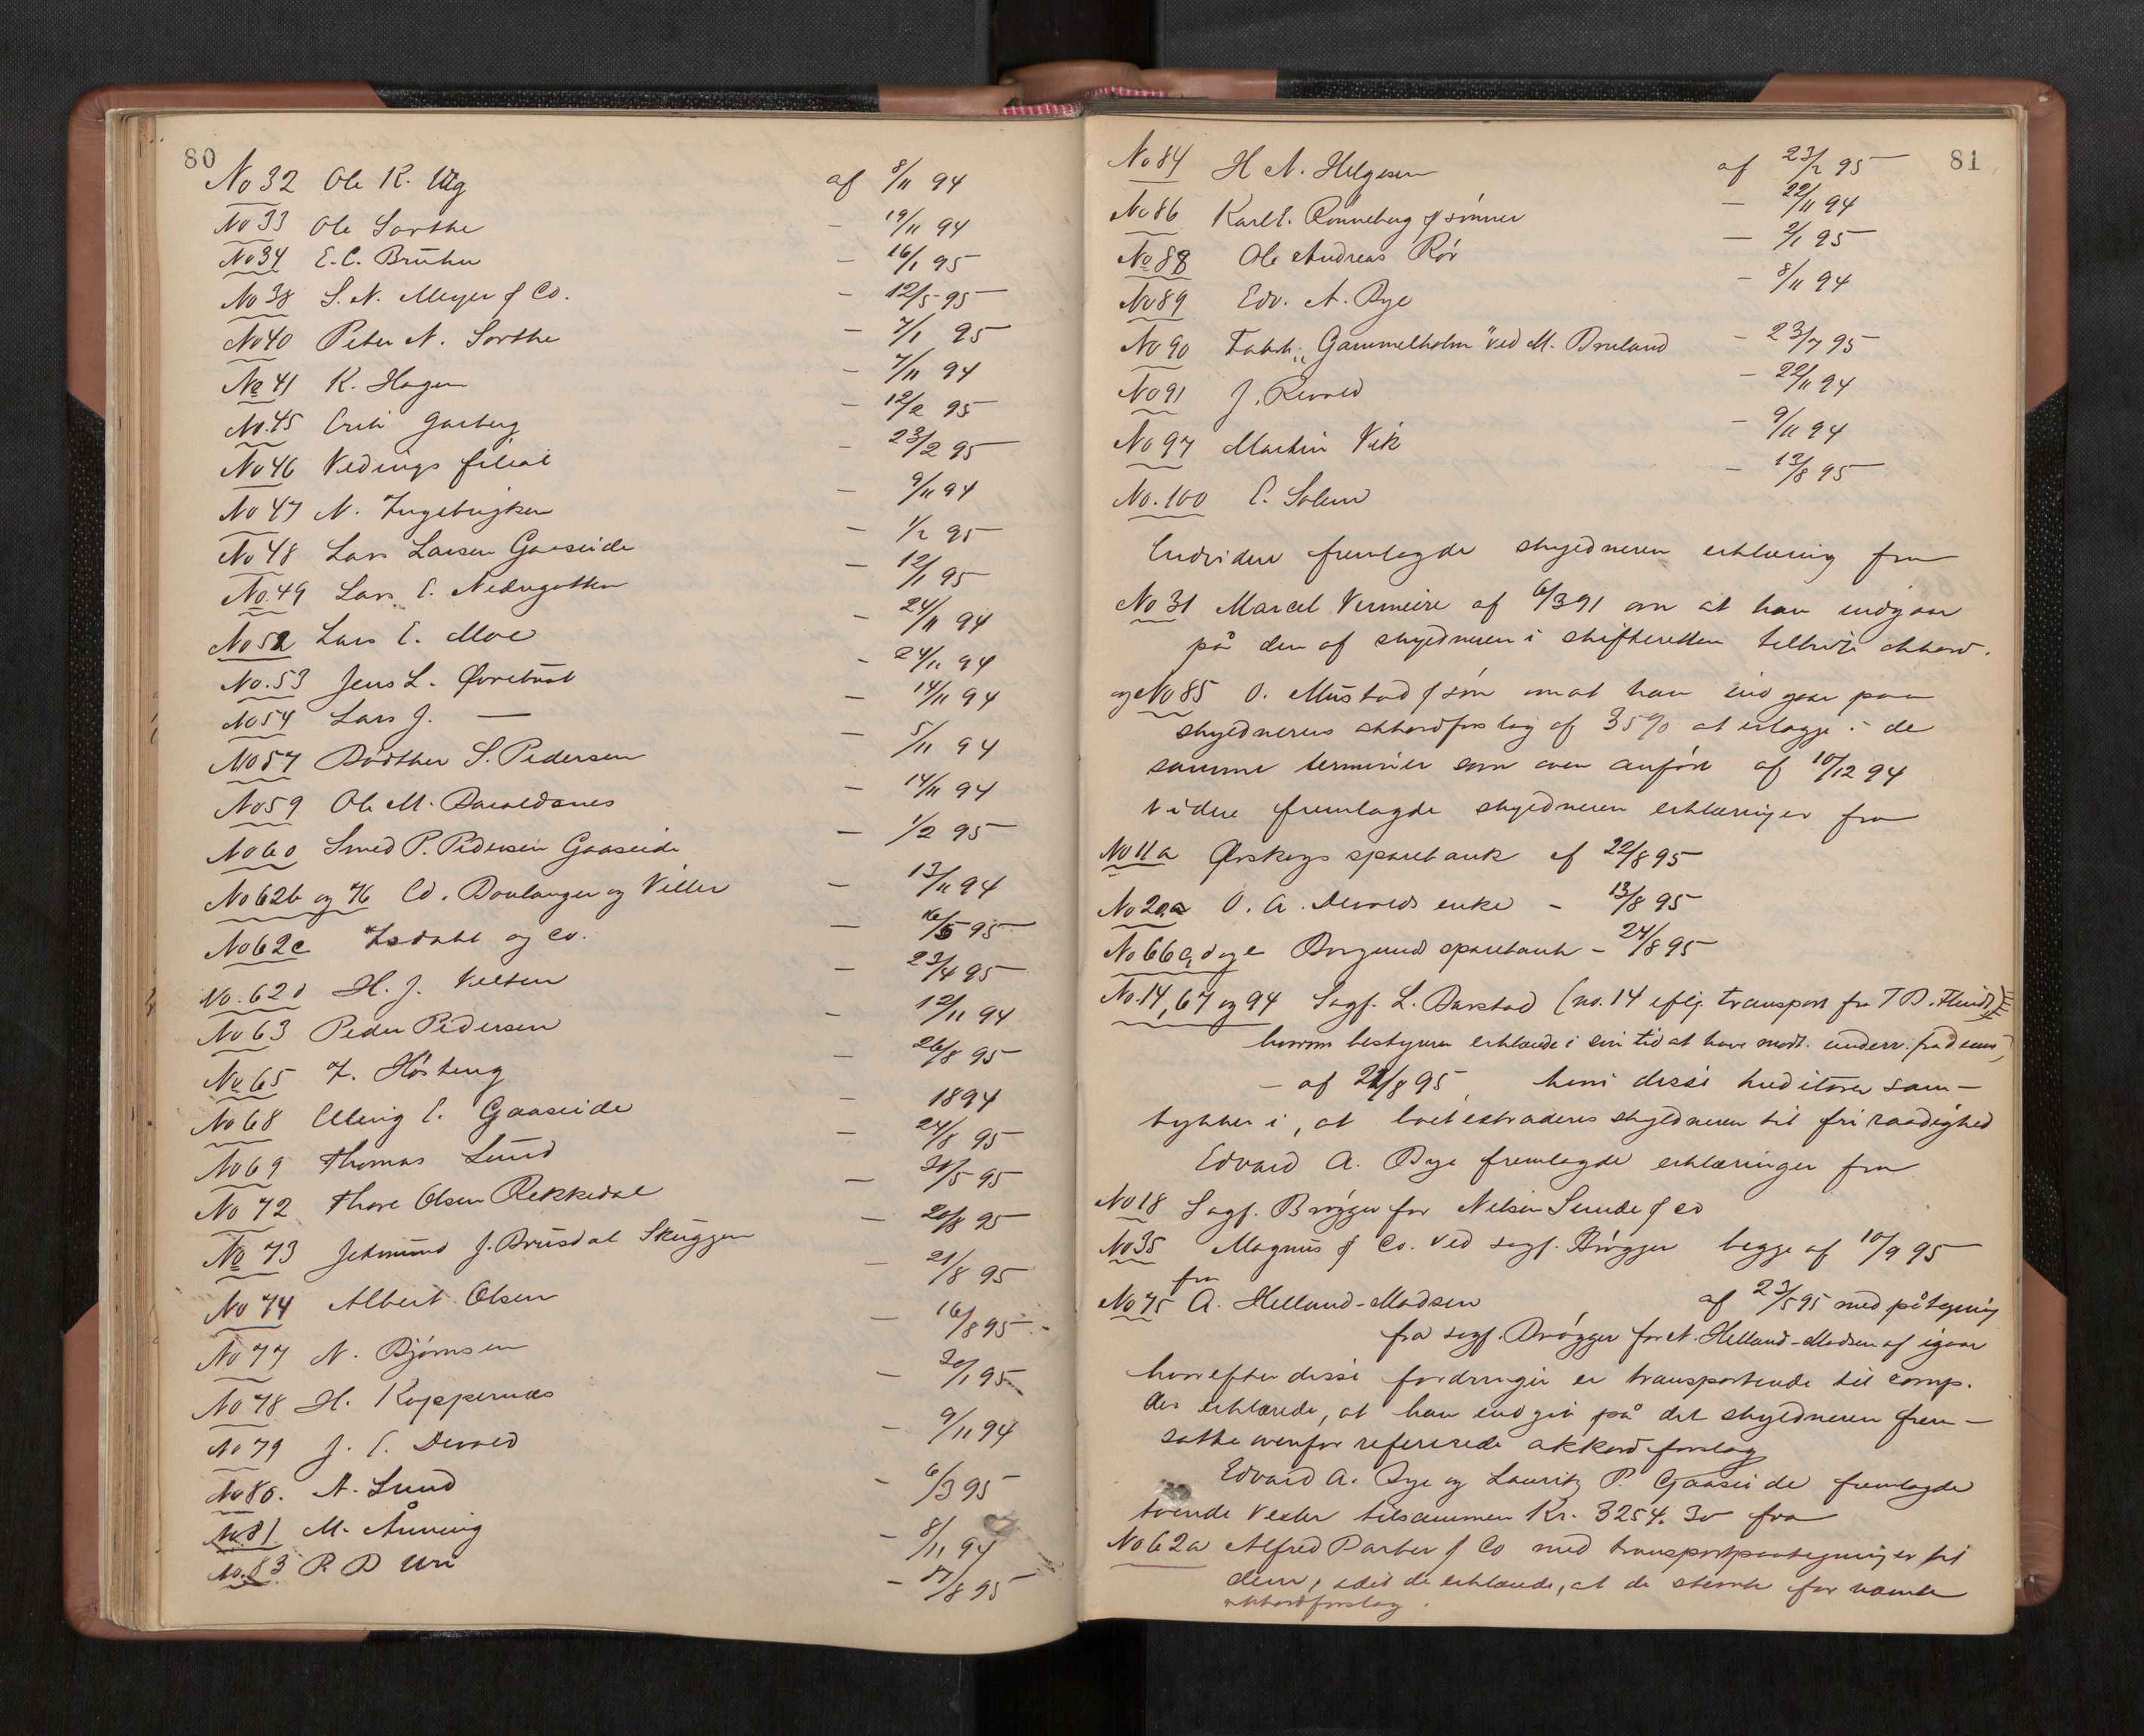 80
No 32 Ole K. Ulg af 8/11 94
No 33 Ole Sorthe - 19/11 94
No 34 E. C. Bruhn - 16/1 95
No 38 S. N. Meyer & Co. - 12/5 95
No 40 Peter N. Sorthe - 7/1 95
No 41 K. Hagen - 7/11 94
No. 45 Erik Garberg - 12/2 95
No 46 Vedings filial - 23/2 95
No 47 N. Ingebrigtsen - 9/11 94
No 48 Lars Larsen Gaaseide - 1/2 95
No. 49 Lars E. Nedregotten - 12/1 95
No 52 Lars E. Moe - 24/11 94
No. 53 Jens L. Øvrebust - 24/11 94
No 54 Lars J. — - 14/11 94
No 57 Bødtker S. Pedersen - 5/11 94
No 59 Ole M. Baraldsnes - 14/11 94
No 60 Smed P. Pedersen Gaaseide - 1/2 95
No 62b og 76 Cd. Boulanger og Viller - 13/11 94
No 62c Isdahl og Co. - 16/5 95
No. 62d H. J. Velten - 23/4 95
No 63 Peder Pedersen - 12/11 94
No 65 I. Høsteng - 26/8 95
No 68 Elling E. Gaaseide - 1894
No 69 Thomas Lund - 24/8 95
No 72 Thore Olsen Rekkedal - 31/5 95
No 73 Jetmund J. Brusdal Skuggen - 20/8 95
No 74 Albert Olsen - 21/8 95
No 77 N. Bjørnsen - 16/8 95
No 78 H. Koppernæs - 30/1 95
No 79 J. E. Devold - 9/11 94
No 80. A. Lund - 6/3 95
No 81 M. Aarning - 8/11 94
No. 83 R D Uri - 17/8 95
81
No 84 H N. Helgesen af 23/2 95
No 86 Karl E. Rønneberg & sønner - 22/11 94
No 88 Ole Andreas Rør - 2/1 95
No 89 Edv. A. Bye - 8/11 94
No 90 Fabrk. "Gammelholm" ved M. Bruland - 23/7 95
No 91 J. Revold - 22/11 94
No 97 Martin Vik - 9/11 94
No. 100 E. Solem - 13/8 95
Endvidere fremlagde skyldneren erklæring fra
No 31 Marcel Vermeire af 6/3 91 om at han indgaar
på den af skyldneren i skifteretten tilbudte akkord.
og No 85 O. Mustad & søn om at han indgaar paa
skyldnerens akkordforslag af 35% at erlægge i de
samme terminer som oven anført af 10/12 94
Videre fremlagde skyldneren erklæringer fra
No 11a Ørskogs sparebank af 22/8 95
No 20a O. A. Devolds enke - 13/8 95
No 66c, d og e Borgund sparebank - 24/8 95
No. 14, 67 og 94 Sagf. L. Barstad (no. 14 eflg. transport fra T B. Flindt,
hvorom bestyreren erklærede i sin tid at have modt. underr. fra denne)
- af 21/8 95, hvori disse kreditorer sam-
tykker i, at boet extraderes skyldneren til fri raadighed
Edvard A. Bye fremlagde erklæringer fra
No 18 Sagf. Brøgger for Nelsen Sunde & co
No 35 Magnus & Co. ved sagf. Brøgger begge af 10/9 95
No 75 fra A. Helland-Madsen af 23/5 95 med påtegning
fra sagf. Brøgger for A. Helland-Madsen af igaar
hvorefter disse fordringer er transporterede til comp.
der erklærede, at han indgik på det skyldneren frem-
satte ovenfor refererede akkordforslag
Edvard A. Bye og Lauritz P. Gaaseide fremlagde
tvende vexler tilsammen Kr. 3254. 30 fra
No 62a Alfred Parber & Co med transportpaategninger til
dem, idet de erklærede, at de stemte for nævnte
akkordforslag.